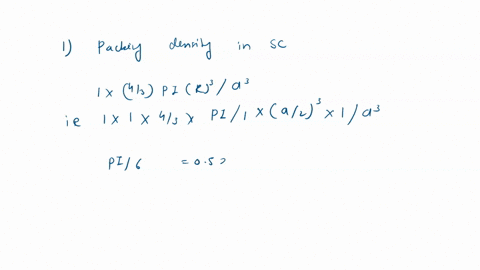 1) Packing density in SC
1 x (4/3) PI (R)³ / a³
ie 1 x 1 x 4/3 x PI/1 x (a/2)³ x 1/a³
PI/6 = 0.52